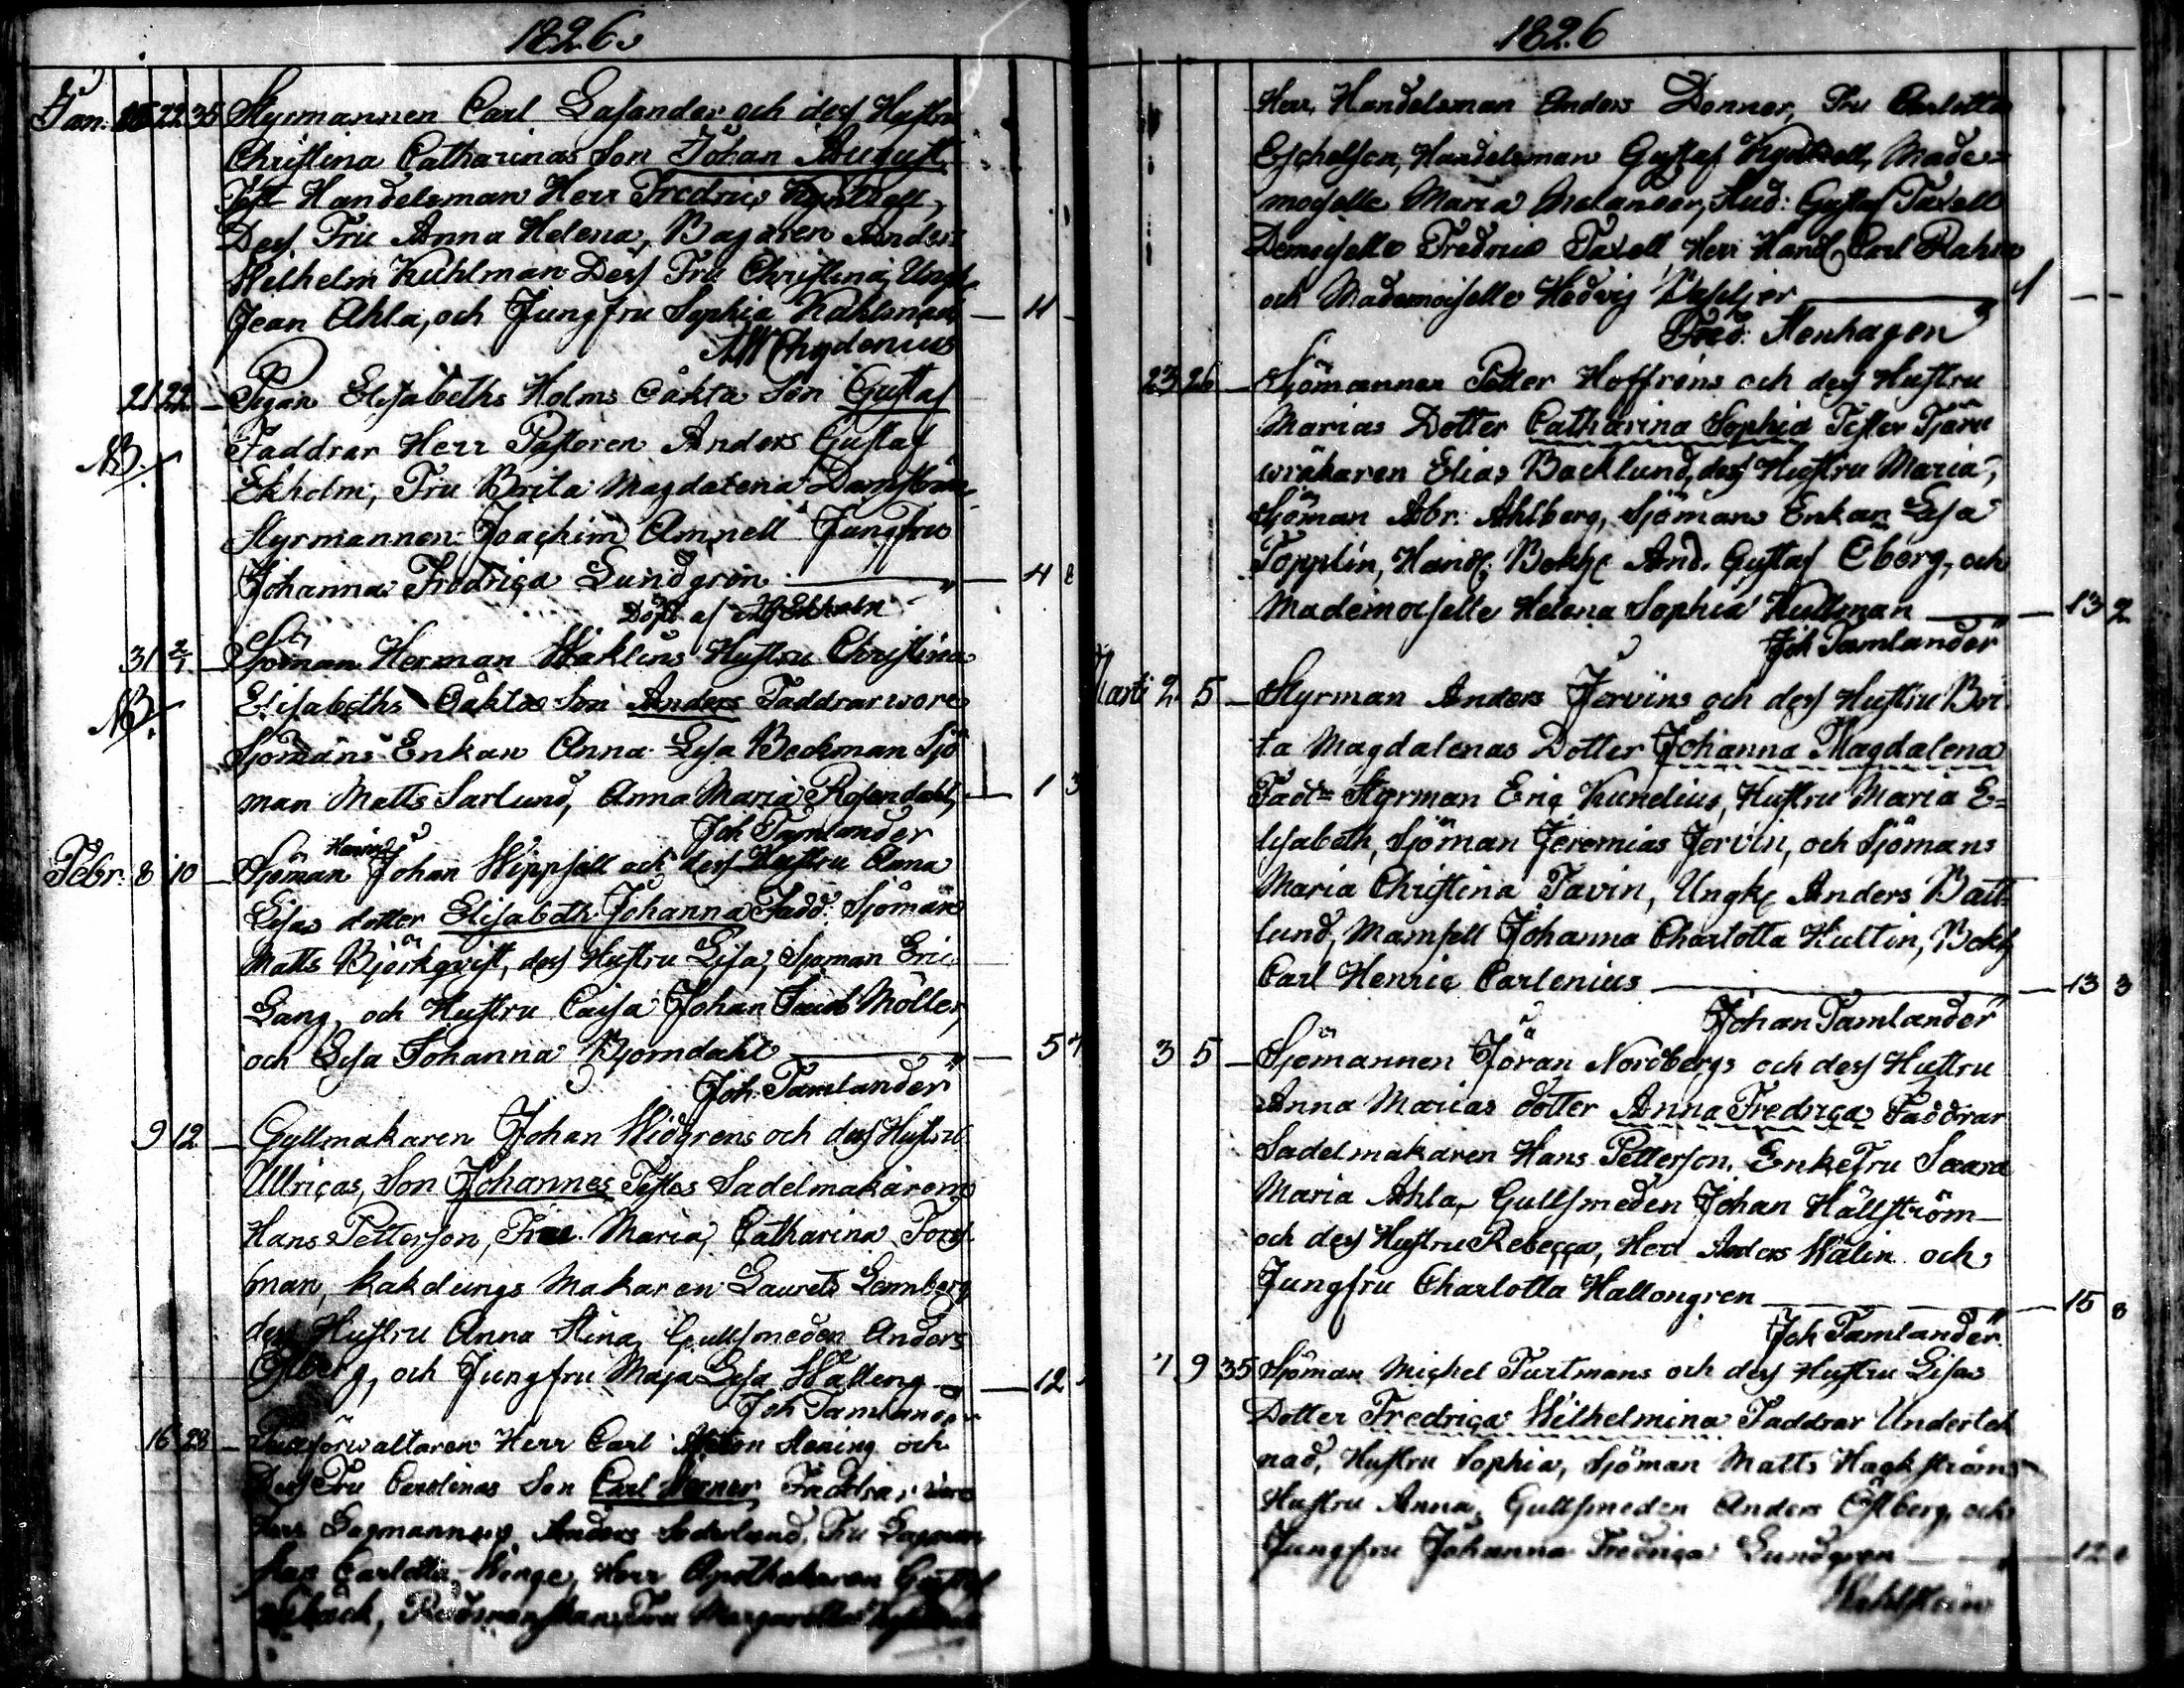 1826
Jan. 22 35 Styrmannen Carl Lasander och dess Hustru
Christina Catharinas Son Johan August
Test Handelsman Herr Fredric
Dess Fru Anna Helena, Bagaren Anders
Wilhelm Kuhlman Dess Fru Christina, Ungk
Jean Ahla, och Jungfru Sophia Kuhlman — 4 —
Chydenius
21 22 — Pigan Elisabeths Holms Oäkta Son Gustaf
NB. Faddrar Herr Pastoren Anders Gustaf
Ekholm, Fru Brita Magdalena
Styrmannen Joachim Amnell Jungfru
Johanna Fredrica Lundgren — 4 8
Döpt af Ekholm
31 2/1 — Sjöman Herman Waklins Hustru Christina
NB. Elisabeths Oäkta Son Anders Faddrar wore
Sjömans Enkan Anna Lisa Backman Sjö
man Matts Sarlund, Anna Maria Rosendahl, — 1 3
Joh Tamlander
Henric
Febr. 8 10 — Sjöman Johan Wippsall och dess Hustru Anna
Lisas dotter Elisabeth Johanna Fadd. Sjöman
Matts Björkqvist, dess Hustru Lisa, Sjöman Eric
Lang, och Hustru Caisa Johan Jacob Möller,
och Lisa Johanna Björndahl — 5 4
Joh. Tamlander
9 12 — Gyllmakaren Johan Widgrens och dess Hustru
Ullricas, Son Johannes Testes Sadelmakaren
Hans Petterson, Fru Maria, Catharina Forss
man, kakelungs Makaren Laurets Lennberg
dess Hustru Anna Stina, Gullsmeden Anders
Östberg, och Jungfru Maja Lisa Walleng — 12
Joh Tamlander
16 28 — Herr Carl Anton Stening och
Dess Fru Carolinas Son Carl Werner, Faddrar wore
Herr Lagmannen Anders Soderlund, Fru Lagman
skan Carlotta Winge, Herr Apothekaren Gustaf
Fru Margaretha
1826
Herr Handelsman Anders Donner, Fru Carlotta
Eschelson, Handelsman Gustaf Made=
moiselle Maria Melander, Stud: Gustaf Taxell
Demoiselle Fredrica Taxell Herr Handl Carl Rahm
och Mademoiselle Hedvig — 4 --
Fred. Stenhagen
23 26 — Sjömannen Petter Hoffréns och dess Hustru
Marias Dotter Catharina Sophia Testes Tjäru
wräkaren Elias Backlund, dess Hustru Maria,
Sjöman Abr: Ahlberg, Sjömans Enkan Lisa
Topplin, Handl: Bokh And. Gustaf Öberg, och
Mademoiselle Helena Sophia Kullman — 13 2
Joh Tamlander
Marti 2. 5 — Styrman Anders Jervins och dess Hustru Bri
ta Magdalenas Dotter Johanna Magdalena
Fadr= Styrman Eric Kunelius, Hustru Maria E=
lisabeth, Sjöman Jeremias Jervin, och Sjömans
Maria Christina Tavin, Ungk Anders Batt=
lund, Mamsell Johanna Charlotta Hultin, Bokh
Carl Henric Carlenius — 13 3
Johan Tamlander
3 5 — Sjömannen Jöran Nordbergs och dess Hustru
Anna Marias dotter Anna Fredrica Faddrar
Sadelmakaren Hans Petterson, Enkefru Saara
Maria Ahla, Gullsmeden Johan Hällström
och dess Hustru Rebecca, Herr Anders Walin och
Jungfru Charlotta Hallongren — 15 8
Joh Tamlander.
7 9 35 Sjöman Michel Furtmans och dess Hustru Lisas
Dotter Fredrica Wilhelmina Faddrar Underteck
nad, Hustru Sophia, Sjöman Matts Hackströms
Hustru Anna, Gullsmeden Anders Östberg, och
Jungfru Johanna Fredrica Lundgren — 12
Wahlstein